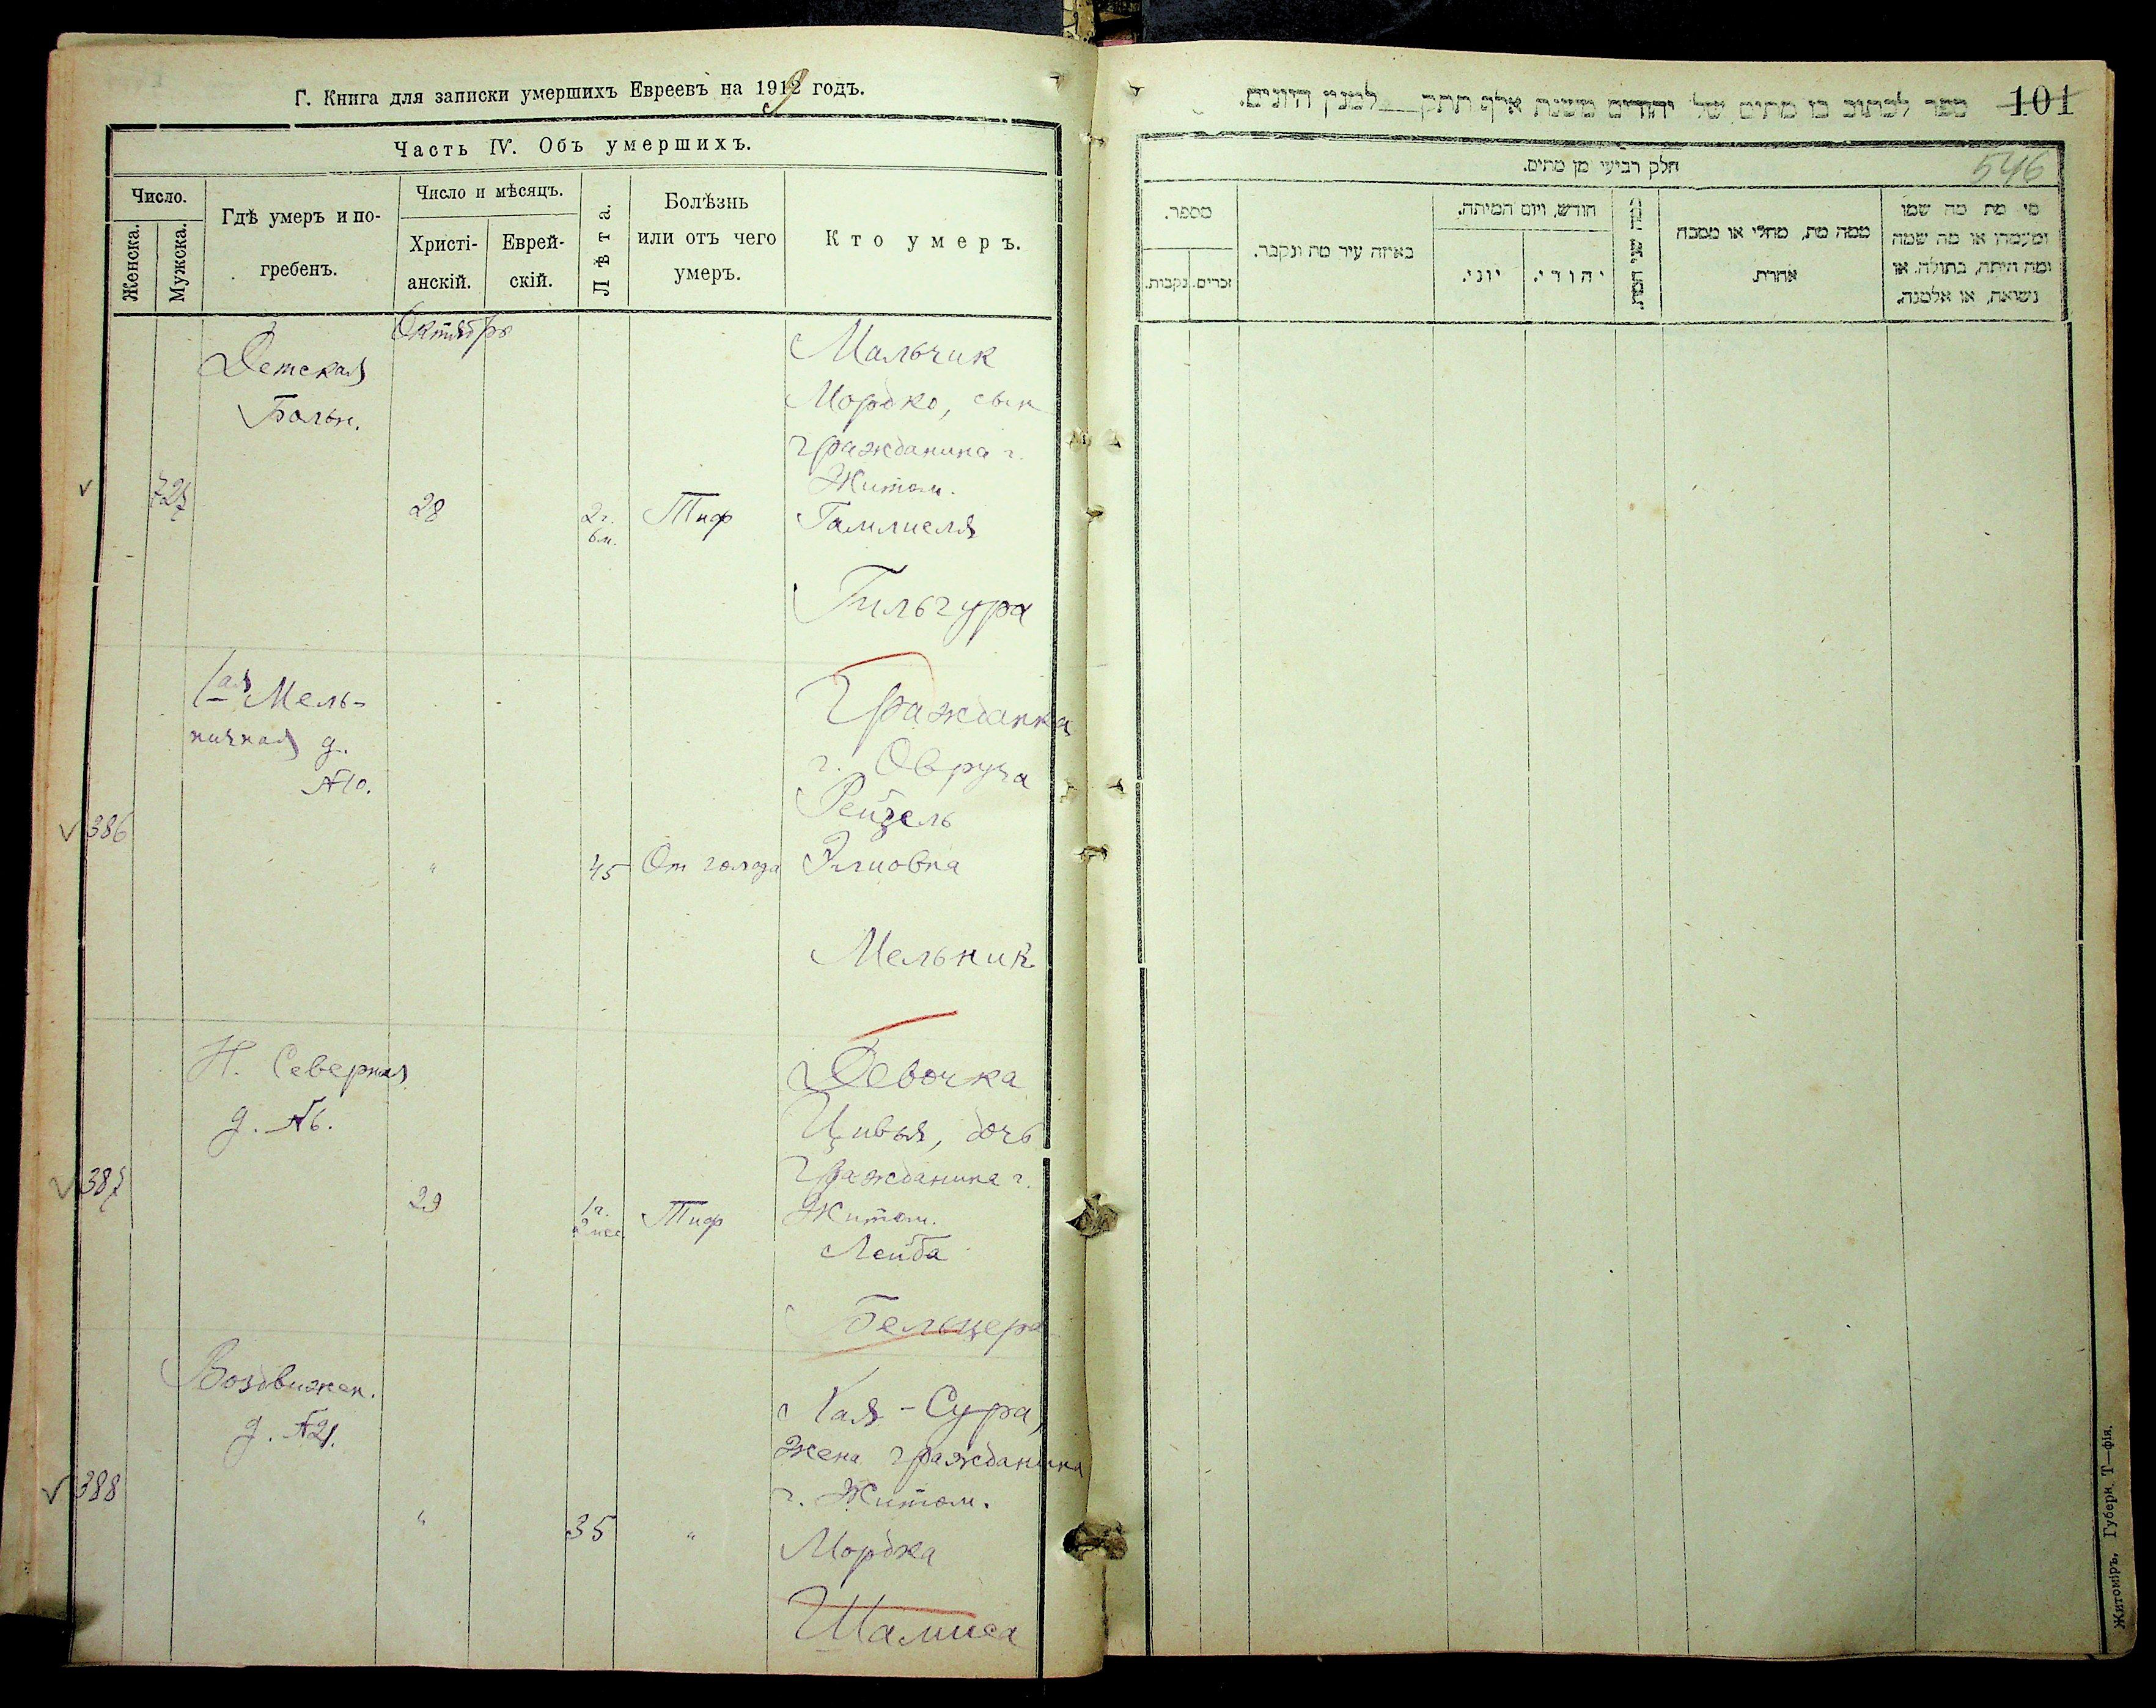 Г. Книга для записки умершихъ Евреевъ на 1919 годъ.
Часть IV. Объ умершихъ.
Число.
Женска.
Мужска.
Гдѣ умеръ и по-
гребенъ.
Число и мѣсяцъ.
Христі-
анскій.
Еврей-
скій.
Лѣта.
Болѣзнь
или отъ чего
умеръ.
Кто умеръ.
Октябрь
Детская
Больн.
727
28
2 г.
6 м.
Тиф
Мальчик
Мордко, сын
гражданина г.
Житом.
Гамлиеля
Гильгура
1ая Мель-
ничная д.
№10.
386
"
45
От голода
Гражданка
г. Овруча
Рейзель
Элиовна
Мельник
Н. Северная
д. №6.
387
29
1 г.
2 мес
Тиф
Девочка
Цивья, дочь
гражданина г.
Житом.
Лейба
Бельцера
Воздвижен.
д. №21.
388
"
35
"
Хая-Сура,
жена гражданина
г. Житом.
Мордка
Шамиса
ספר לכתוב בו מתים של יהודים משנת אלף תתק למנין היונים.
101
546
חלק רביעי מן מתים.
מספר.
נקבות.
זכרים.
באיזה עיר מת ונקבר.
חודש, ויום המיתה.
יוני.
יהודי.
כמה שני המת.
ממה מת, מחלי או מסבה
אחרת.
מי מת מה שמו
ומעמדו או מה שמה
ומה היתה, בתולה, או
נשואה, או אלמנה.
Житоміръ, Губерн. Т—фія.